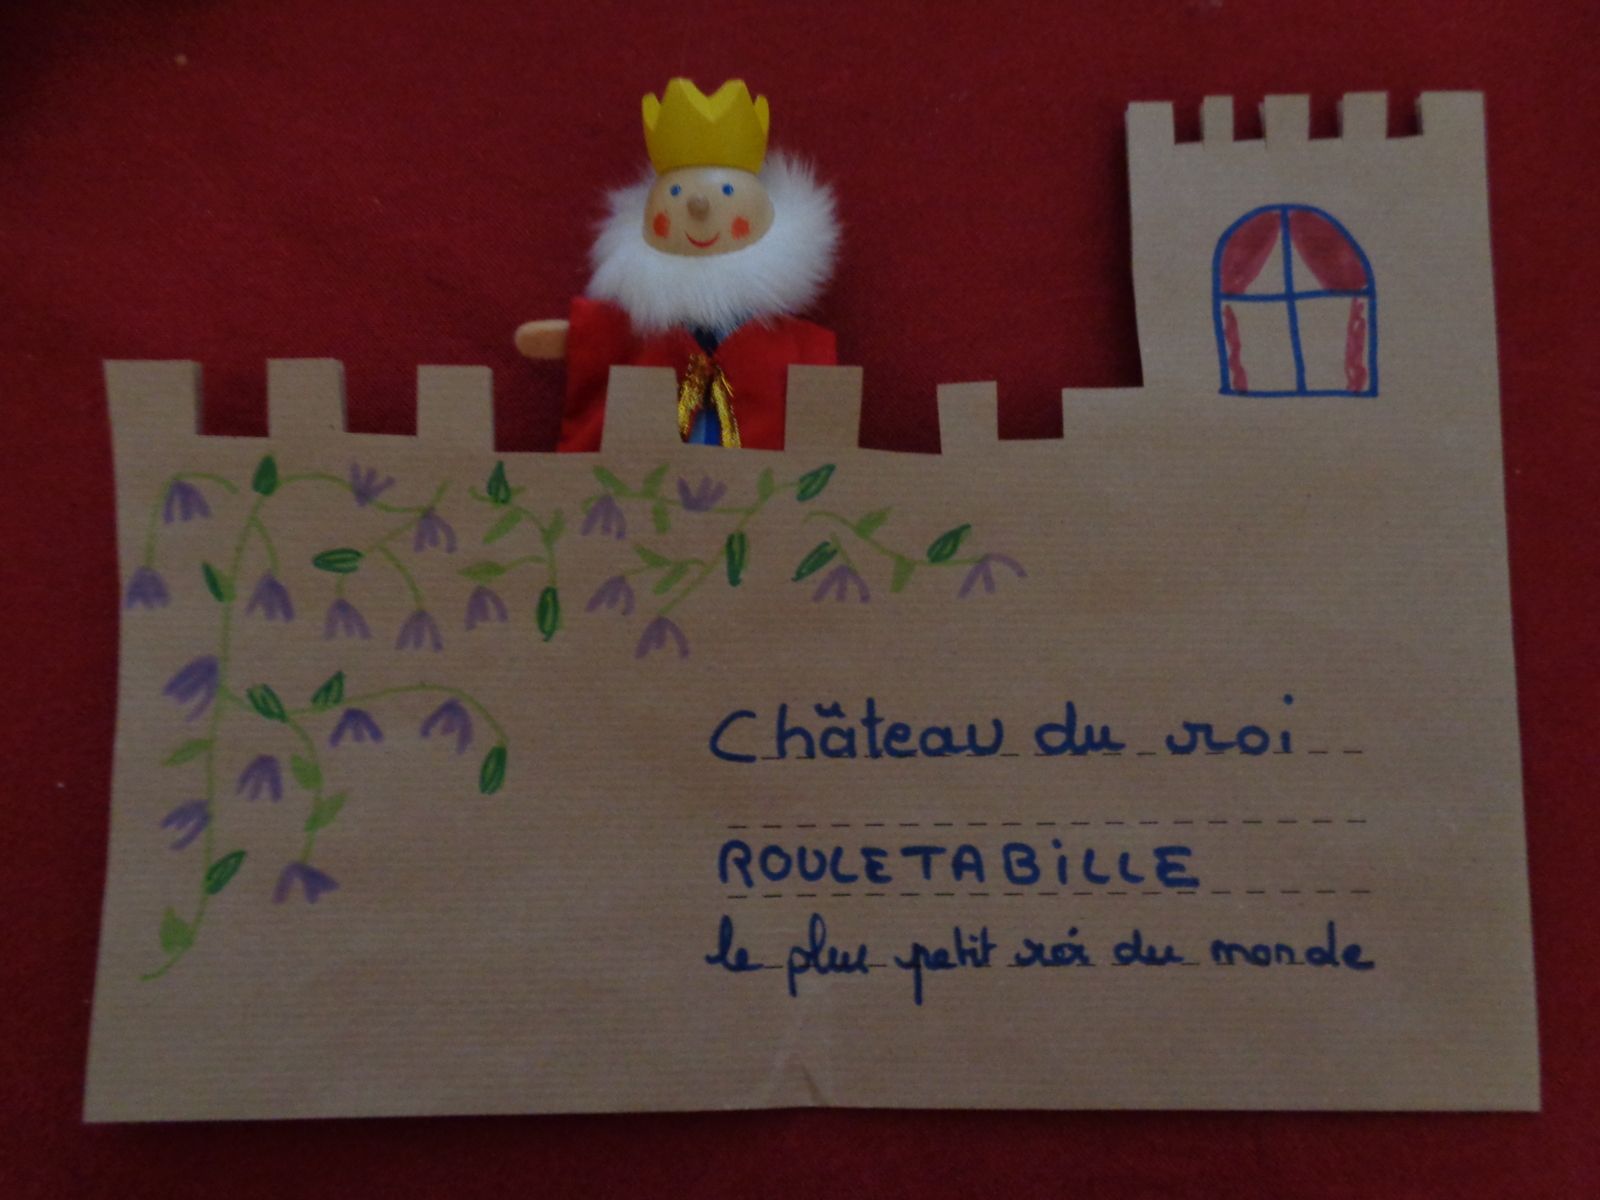 Château du roi
ROULETABiLLE
le plus petit roi du monde